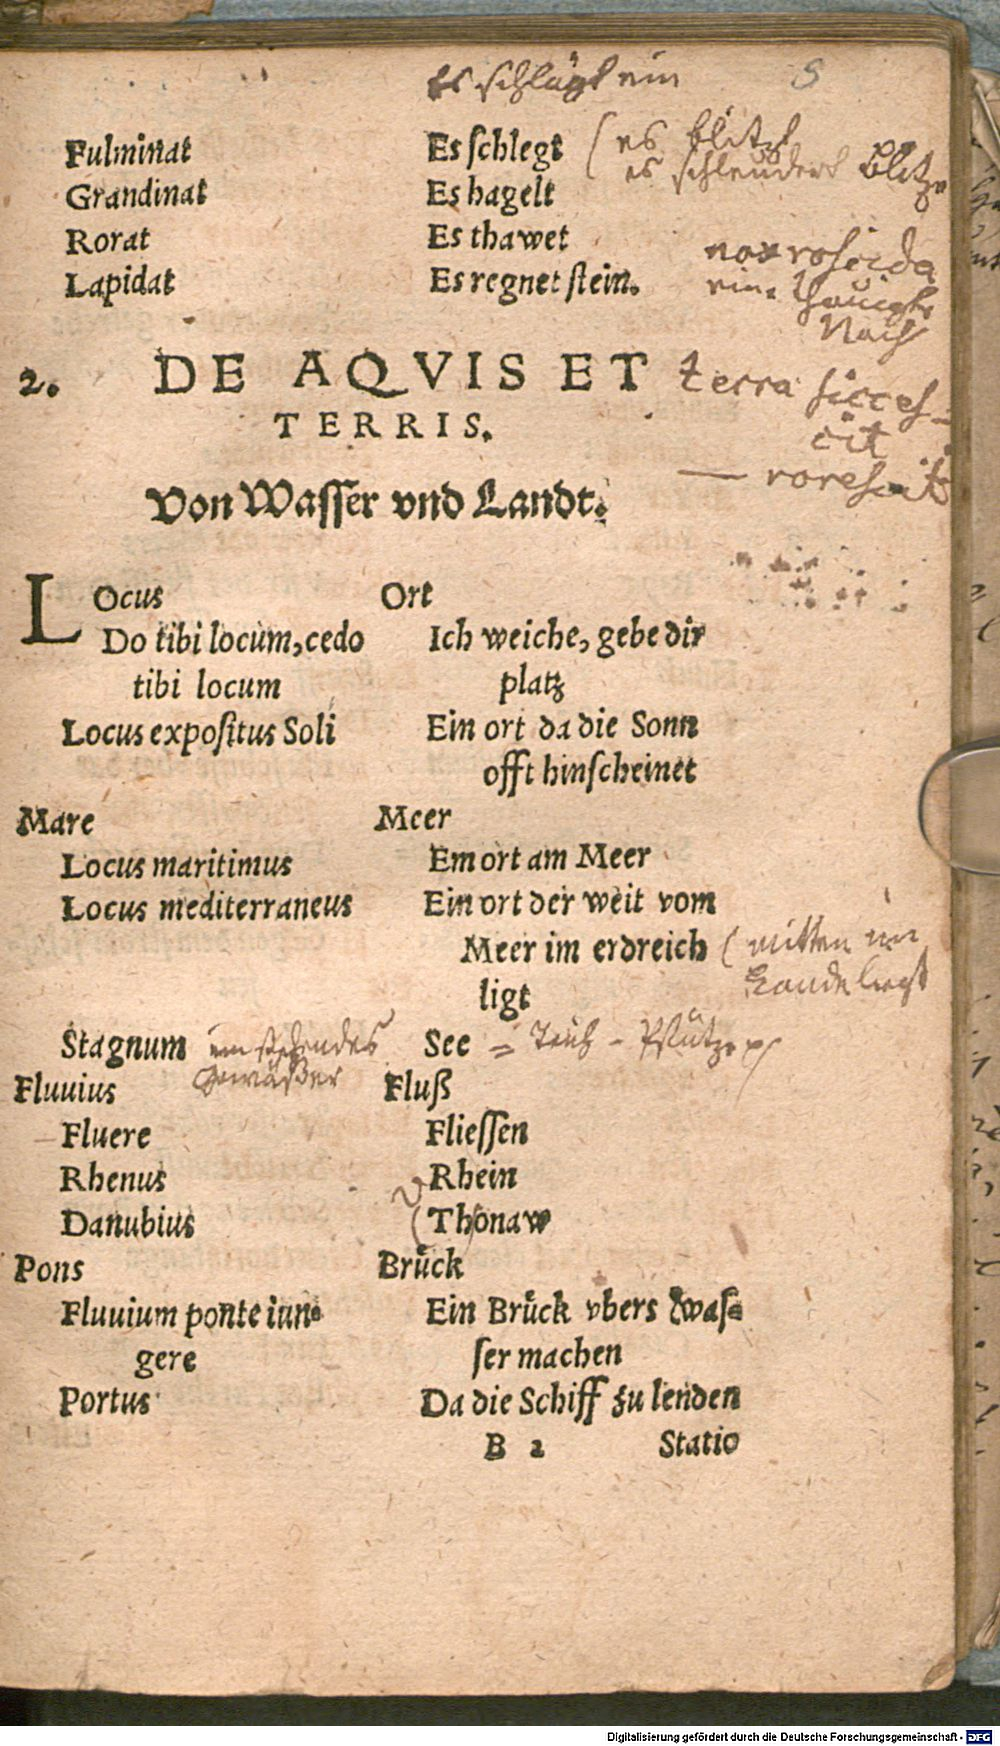 es schlägt ein
5
Fulminat Es schlegt ( es blitzt
es schleudert Blitze
Grandinat Es hagelt
Rorat Es thawet
nox roscida
Lapidat Es regnet stein.
eine thauigte
Nacht
2. DE AQVIS ET
terra sicces-
TERRIS.
cit
— rorescit
Von Wasser vnd Landt.
LOcus Ort
Do tibi locum, cedo Ich weiche, gebe dir
tibi locum platz
Locus expositus Soli Ein ort da die Sonn
offt hinscheinet
Mare Meer
Locus maritimus Em ort am Meer
Locus mediterraneus Ein ort der weit vom
Meer im erdreich ( mitten im
ligt Lande liegt
Stagnum ein stehendes See = Teich - Pfütze
Gewäßer
Fluuius Fluß
Fluere Fliessen
Rhenus Rhein
D
Danubius (Th)onaw
Pons Brück
Fluuium ponte iun- Ein Brück vbers Was-
gere ser machen
Portus Da die Schiff zu lenden
B 2 Statio
Digitalisierung gefördert durch die Deutsche Forschungsgemeinschaft - DFG